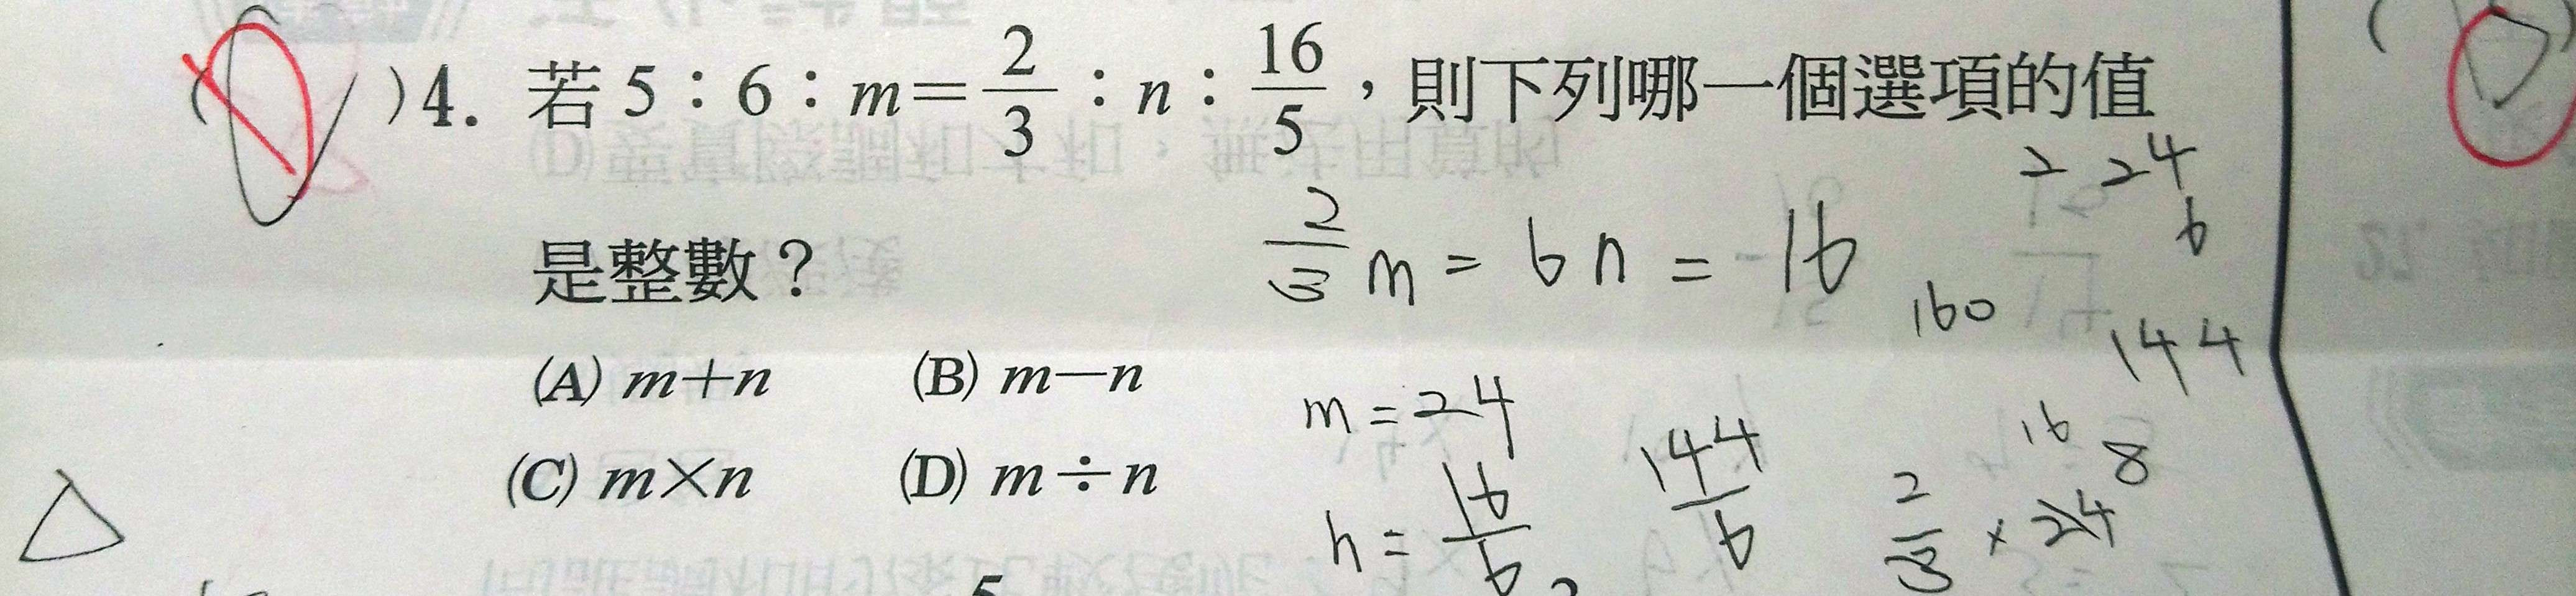 ( )4. 若 5：6：m＝2/3：n：16/5，則下列哪一個選項的值
是整數？
(A) m＋n (B) m－n
(C) m×n (D) m÷n
2/3 m = 6n = 16
m = 24
n = 16/6
144/6
2/3 × 24
16 8
160
144
2 24
6